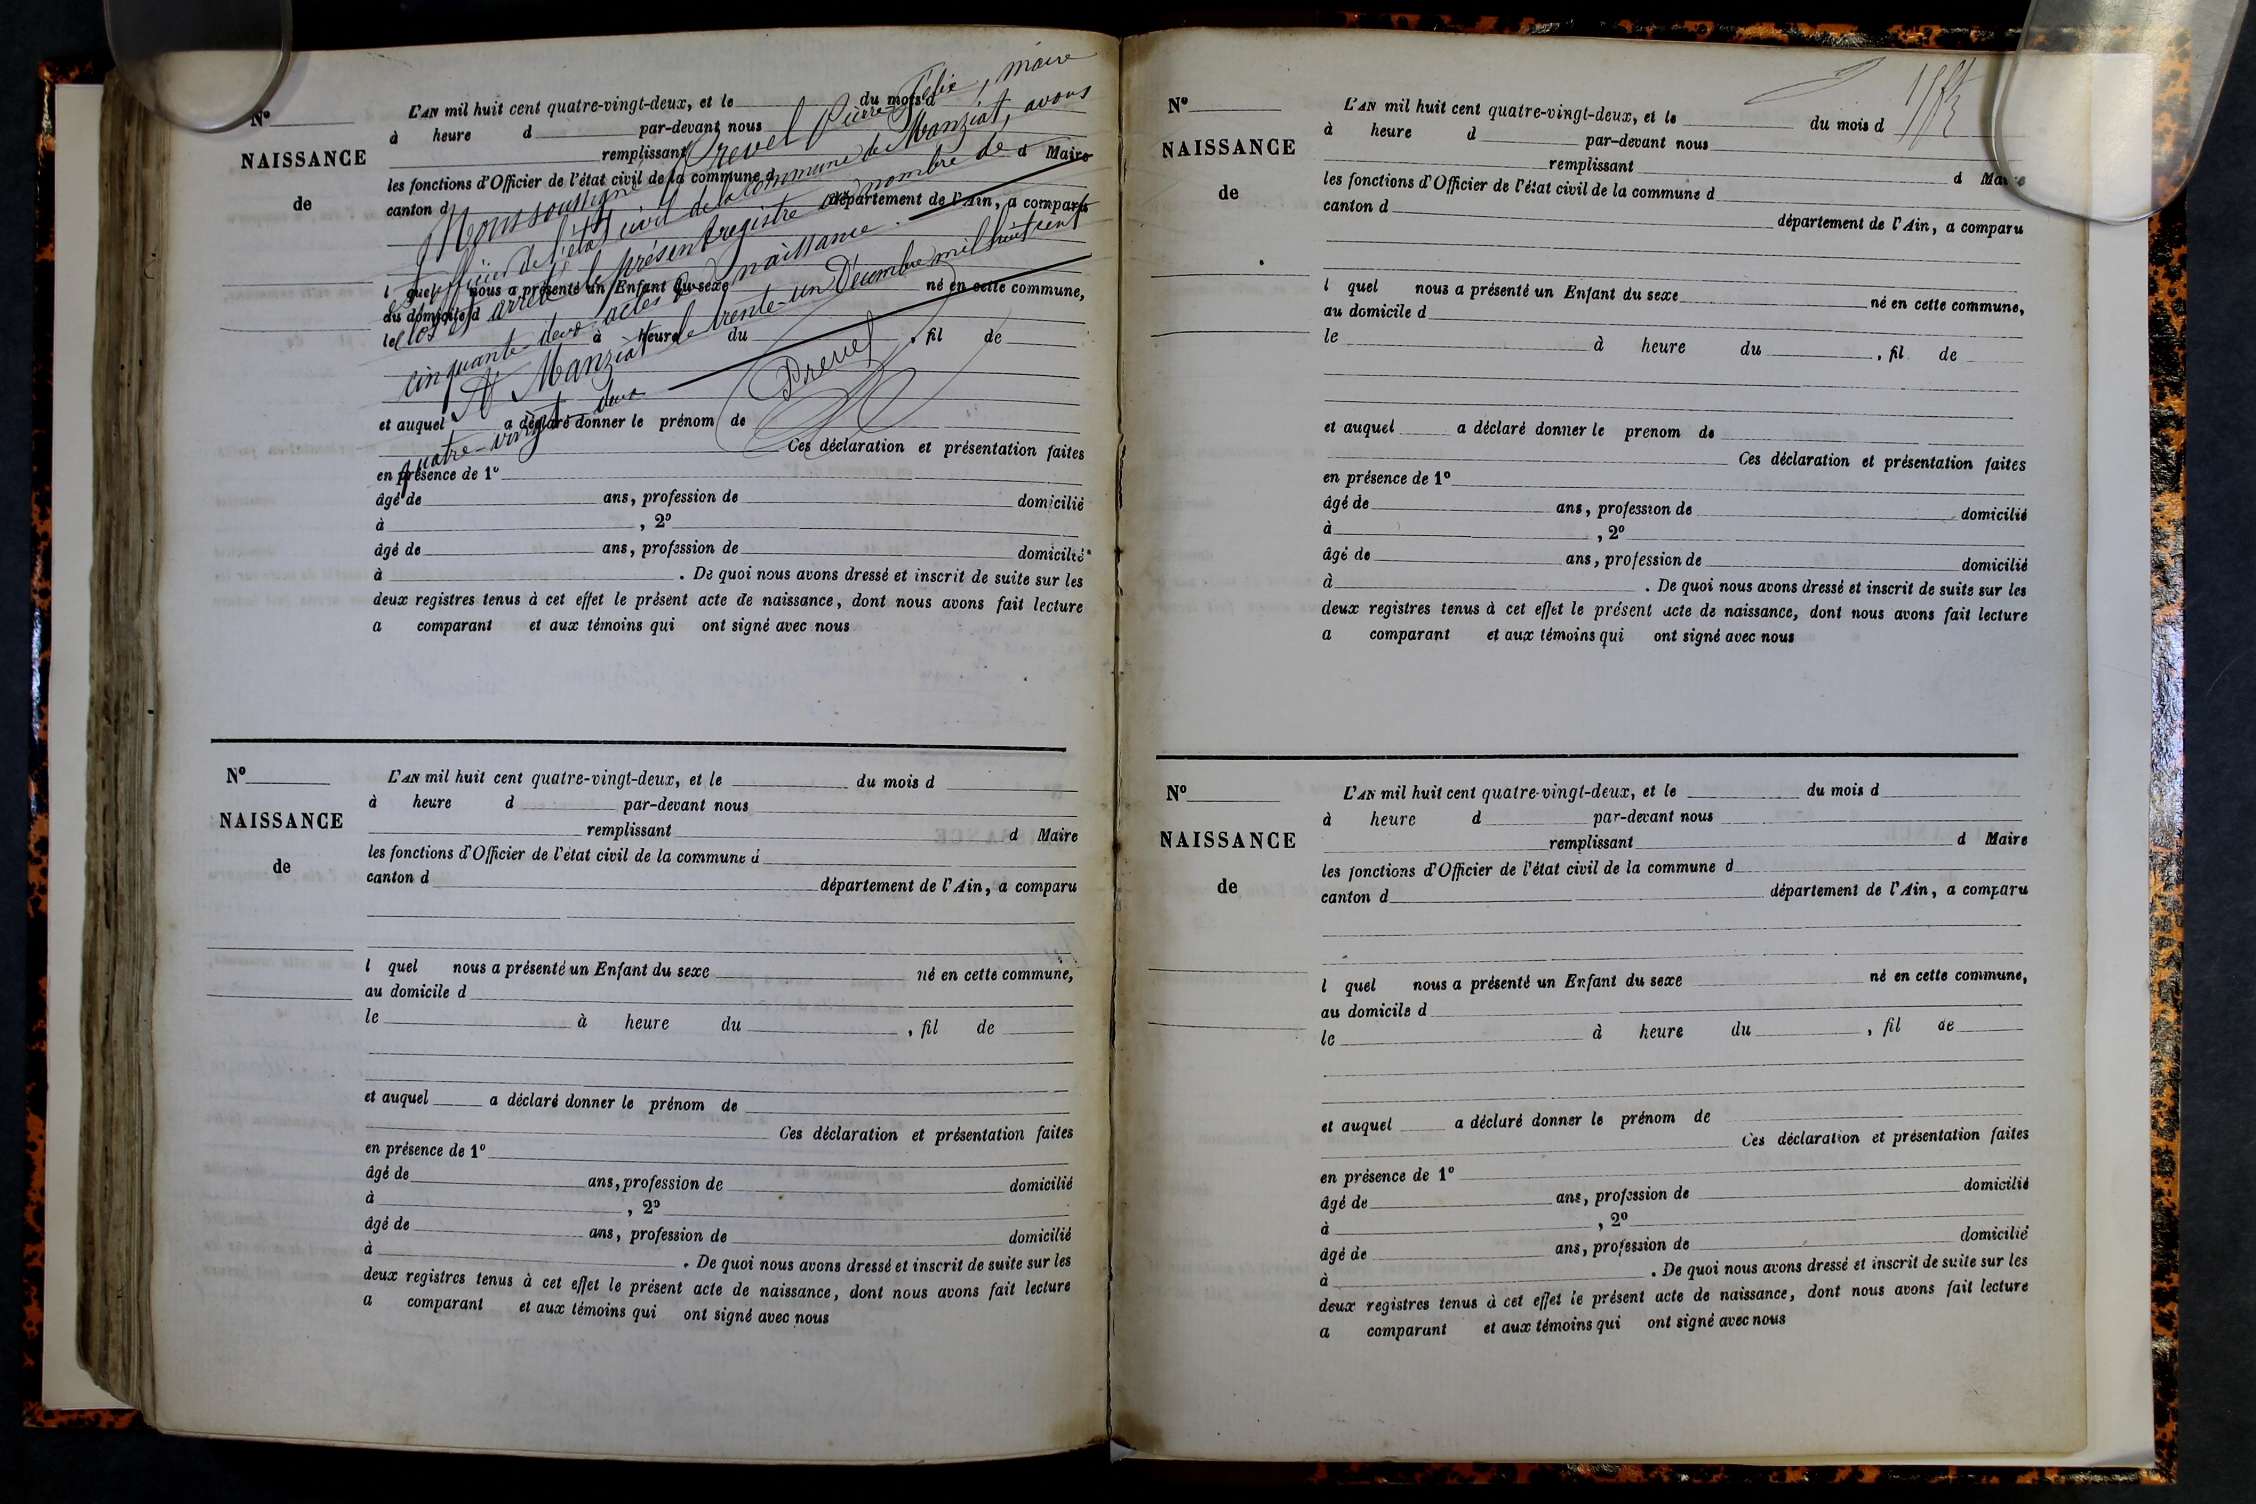 Nº
NAISSANCE
de
L'AN mil huit cent quatre-vingt-deux, et le du mois d
à heure d par-devant nous
remplissant d Maire
les fonctions d'Officier de l'état civil de la commune d
canton d département de l'Ain, a comparu
l quel nous a présenté un Enfant du sexe né en cette commune,
au domicile d
le à heure du , fil de
et auquel a déclaré donner le prénom de
Ces déclaration et présentation faites
en présence de 1º
âgé de ans, profession de domicilié
à , 2º
âgé de ans, profession de domicilié
à . De quoi nous avons dressé et inscrit de suite sur les
deux registres tenus à cet effet le présent acte de naissance, dont nous avons fait lecture
a comparant et aux témoins qui ont signé avec nous
Nous soussigné Prevel Pierre Félix, maire
et officier de l'état civil de la commune de Manziat, avons
clos et arrêté le présent registre au nombre de
cinquante-deux actes de naissance.
A Manziat le trente-un Décembre mil huit cent
quatre-vingt-deux
Prevel
Nº
NAISSANCE
de
L'AN mil huit cent quatre-vingt-deux, et le du mois d
à heure d par-devant nous
remplissant d Maire
les fonctions d'Officier de l'état civil de la commune d
canton d département de l'Ain, a comparu
l quel nous a présenté un Enfant du sexe né en cette commune,
au domicile d
le à heure du , fil de
et auquel a déclaré donner le prénom de
Ces déclaration et présentation faites
en présence de 1º
âgé de ans, profession de domicilié
à , 2º
âgé de ans, profession de domicilié
à . De quoi nous avons dressé et inscrit de suite sur les
deux registres tenus à cet effet le présent acte de naissance, dont nous avons fait lecture
a comparant et aux témoins qui ont signé avec nous
Nº
NAISSANCE
de
L'AN mil huit cent quatre-vingt-deux, et le du mois d
à heure d par-devant nous
remplissant d Maire
les fonctions d'Officier de l'état civil de la commune d
canton d département de l'Ain, a comparu
l quel nous a présenté un Enfant du sexe né en cette commune,
au domicile d
le à heure du , fil de
et auquel a déclaré donner le prenom de
Ces déclaration et présentation faites
en présence de 1º
âgé de ans, profession de domicilié
à , 2º
âgé de ans, profession de domicilié
à . De quoi nous avons dressé et inscrit de suite sur les
deux registres tenus à cet effet le présent acte de naissance, dont nous avons fait lecture
a comparant et aux témoins qui ont signé avec nous
Nº
NAISSANCE
de
L'AN mil huit cent quatre-vingt-deux, et le du mois d
à heure d par-devant nous
remplissant d Maire
les fonctions d'Officier de l'état civil de la commune d
canton d département de l'Ain, a comparu
l quel nous a présenté un Enfant du sexe né en cette commune,
au domicile d
le à heure du , fil de
et auquel a déclaré donner le prénom de
Ces déclaration et présentation faites
en présence de 1º
âgé de ans, profession de domicilié
à , 2º
âgé de ans, profession de domicilié
à . De quoi nous avons dressé et inscrit de suite sur les
deux registres tenus à cet effet le présent acte de naissance, dont nous avons fait lecture
a comparant et aux témoins qui ont signé avec nous